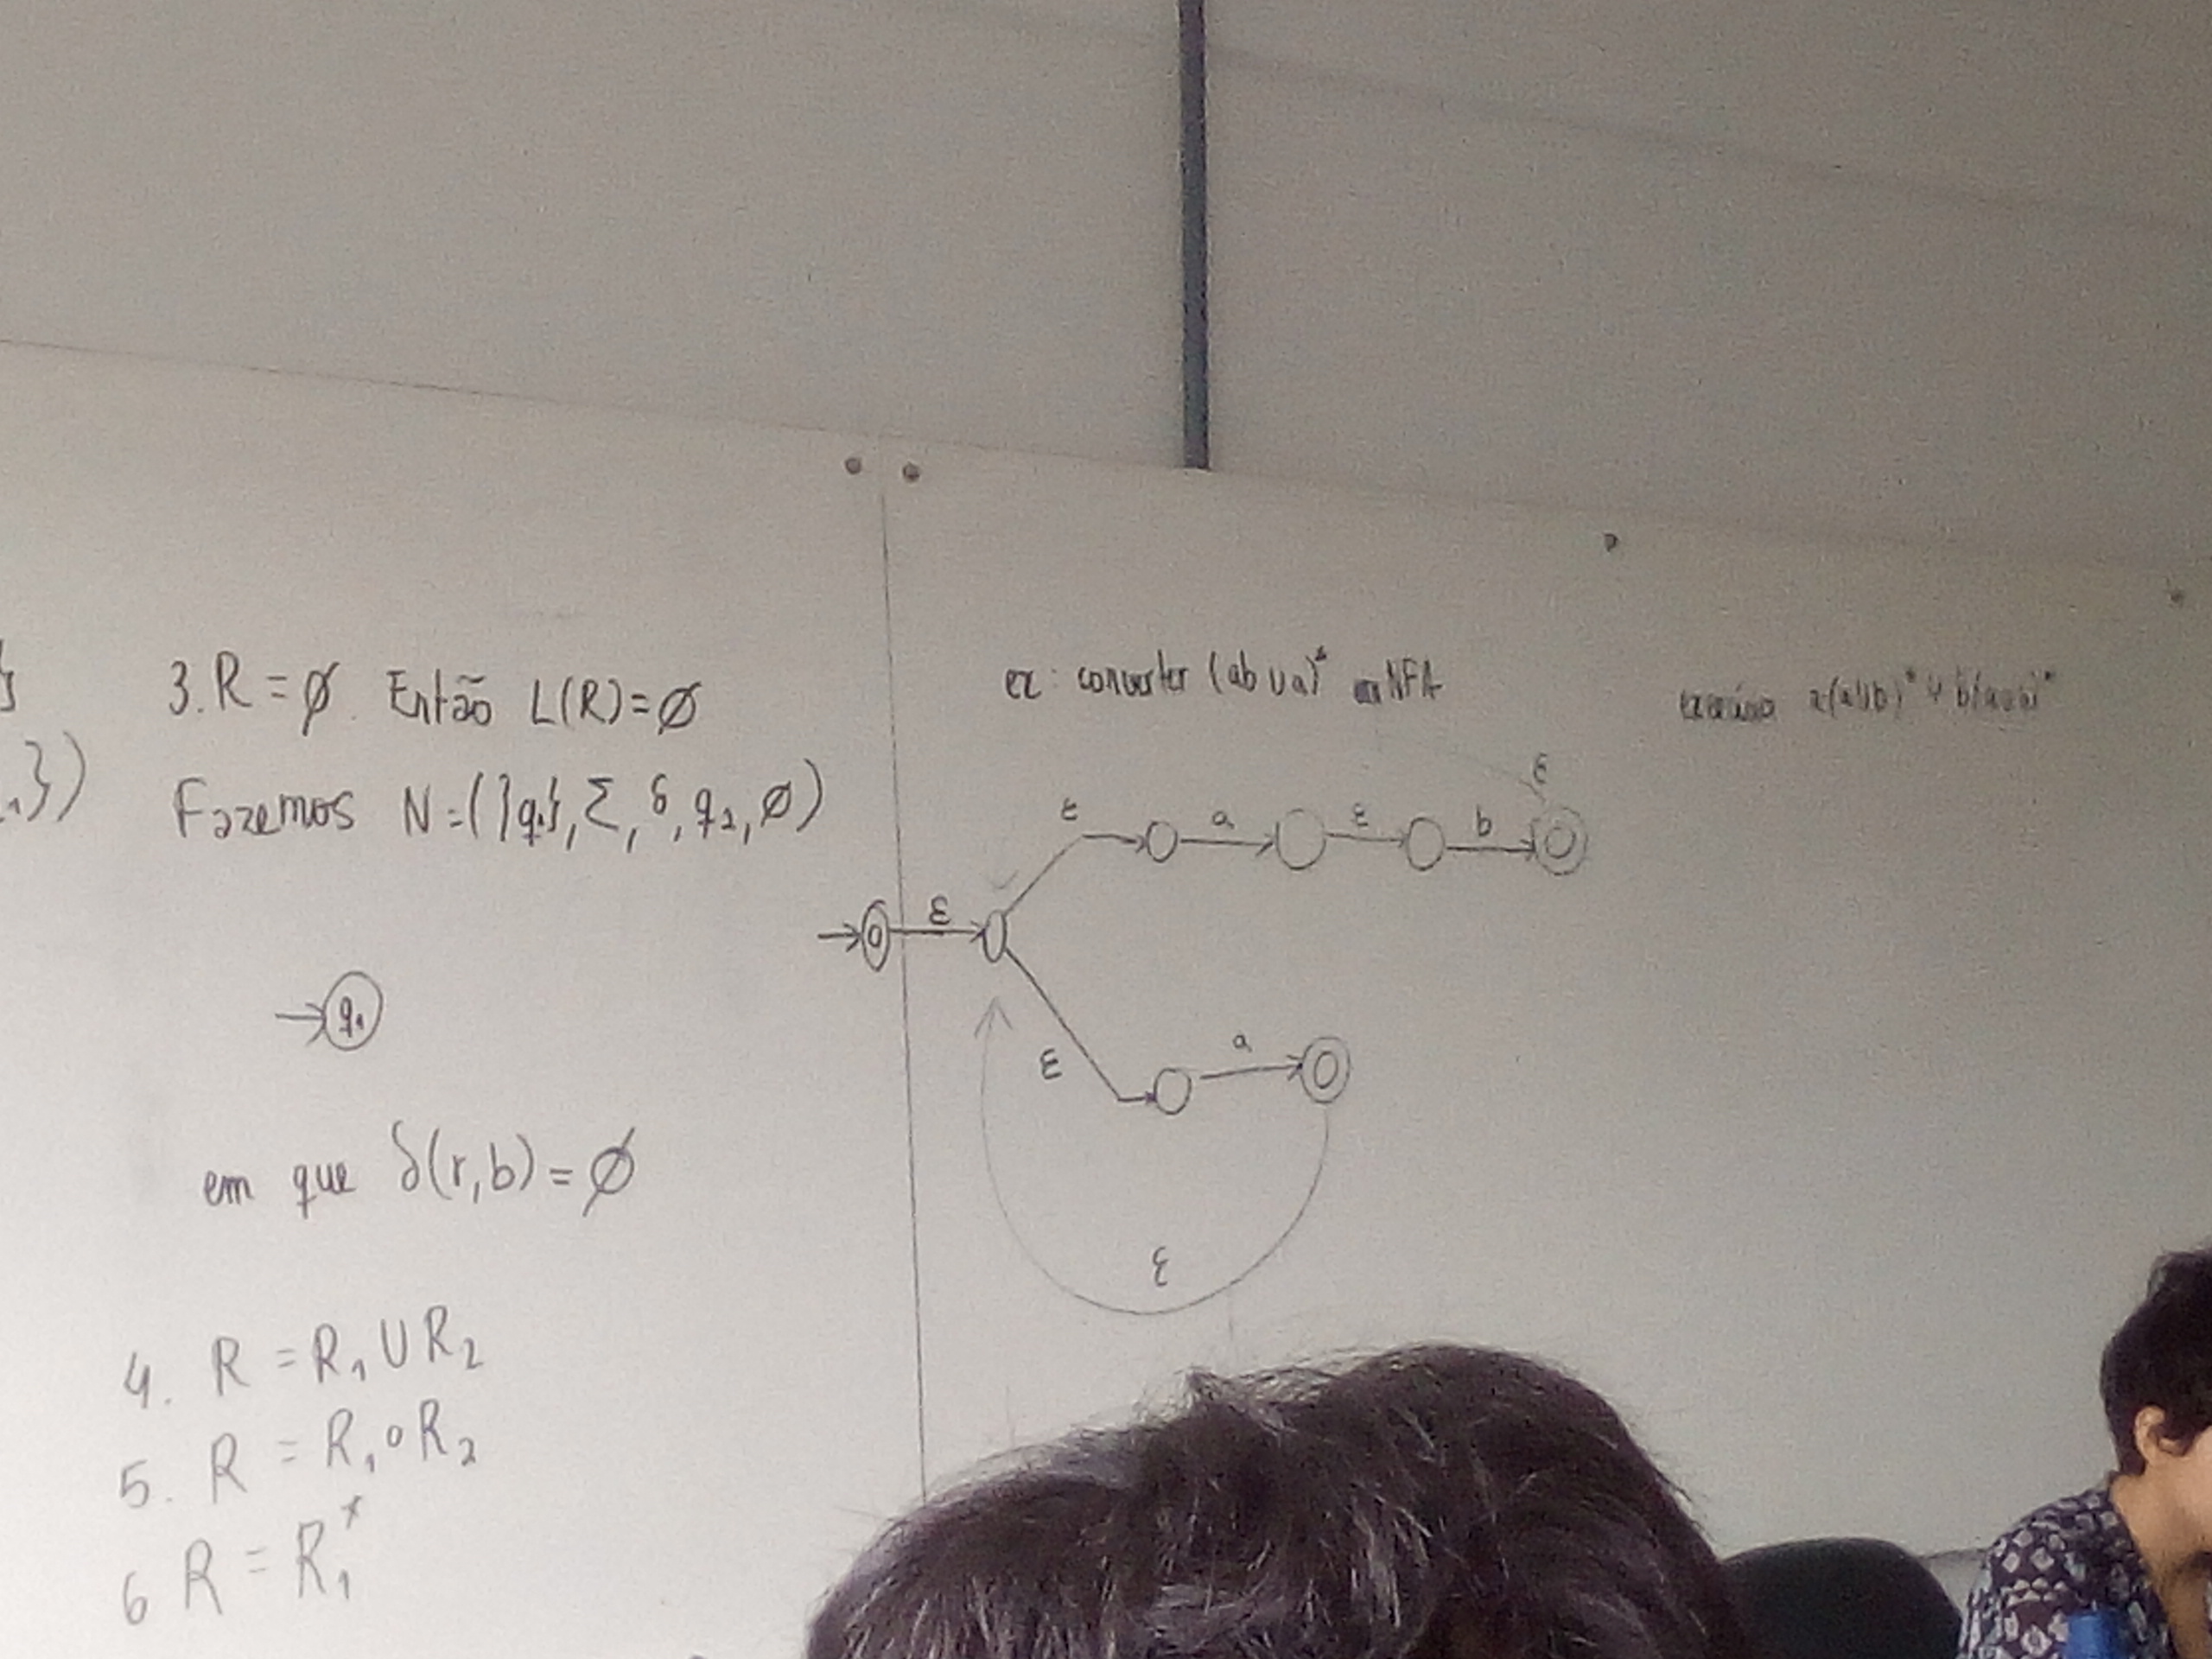 }
₁})
3. R = ∅. Então L(R) = ∅
Fazemos N = ({q₁}, Σ, δ, q₂, ∅)
→ q₁
em que δ(r, b) = ∅
4. R = R₁ ∪ R₂
5. R = R₁ ∘ R₂
6 R = R₁*
ex: converter (ab ∪ a)* em NFA
ε
ε a ε b
ε
ε a
ε
a(a∪b)*